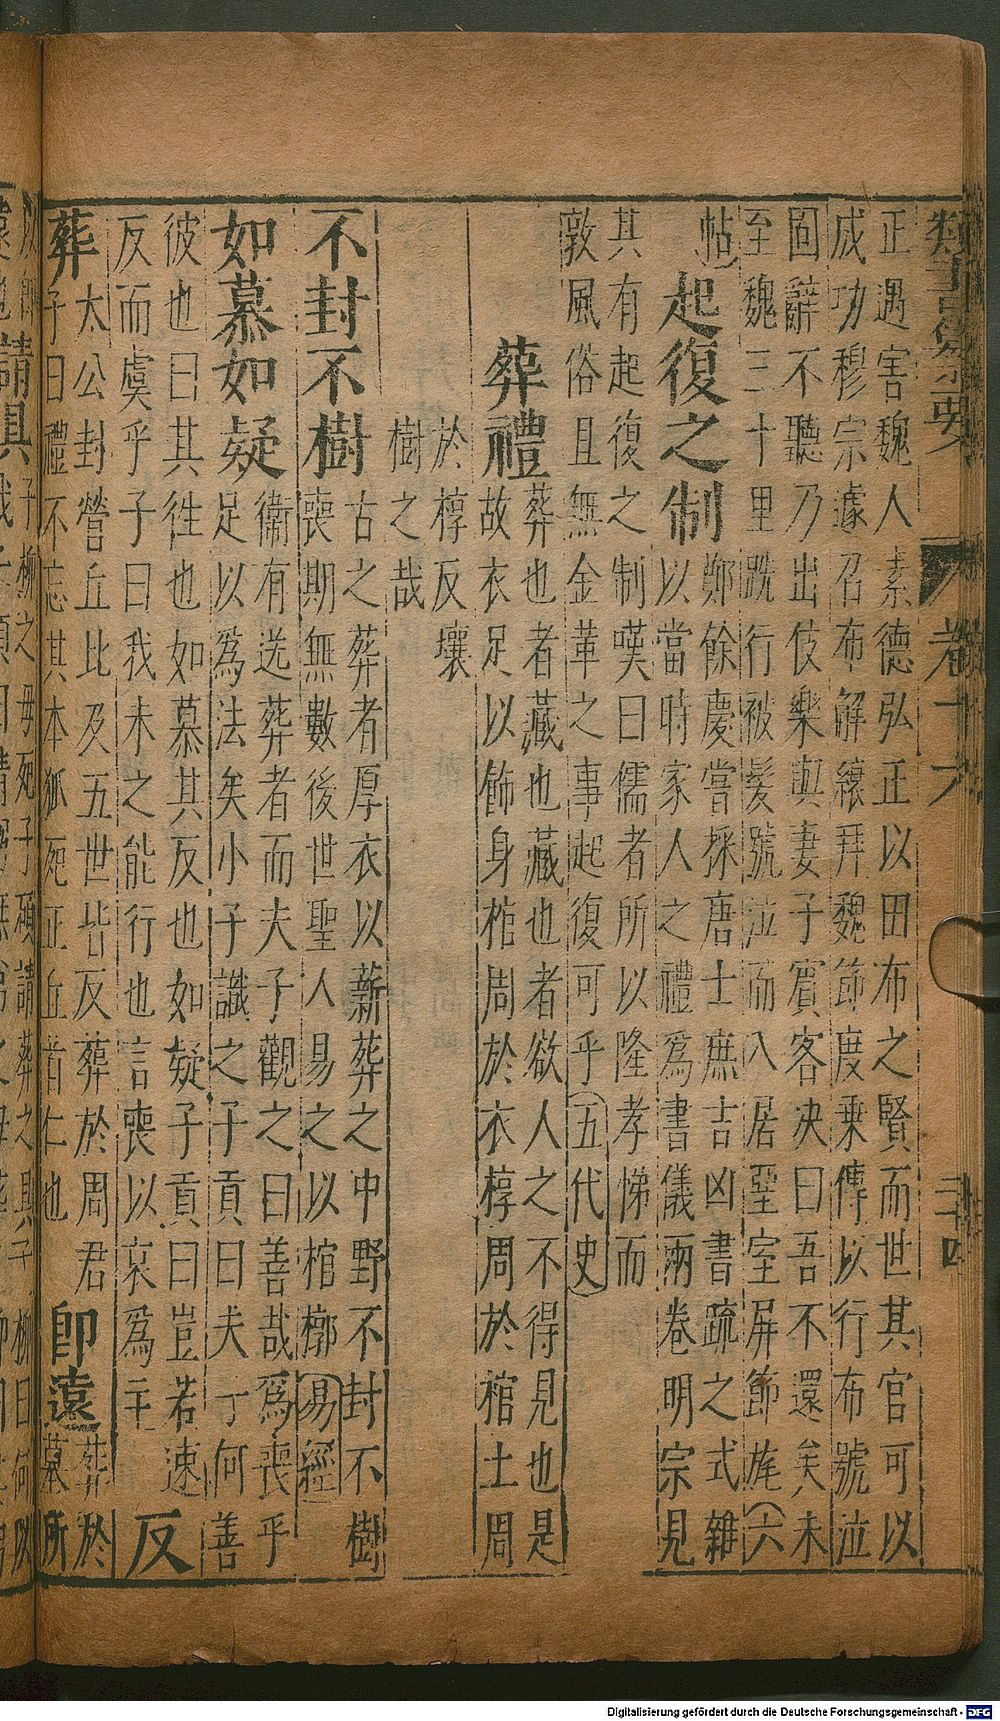 類書纂要 卷十六 三十四
正遇害魏人素德弘正以田布之賢而世其官可以
成功穆宗遽召布解縗拜魏節度乗傳以行布號泣
固辭不聽乃出伎樂與妻子賓客决曰吾不還矣未
至魏三十里跣行被髮號泣而入居堊室屏節旄(六
帖)
起復之制
鄭餘慶嘗採唐士庶吉凶書疏之式雜
以當時家人之禮爲書儀兩卷明宗見
其有起復之制嘆曰儒者所以隆孝悌而
敦風俗且無金革之事起復可乎(五代史)
葬禮
葬也者藏也藏也者欲人之不得見也是
故衣足以飾身棺周於衣椁周於棺土周
於椁反壤
樹之哉
不封不樹
古之葬者厚衣以薪葬之中野不封不樹
喪期無數後世聖人易之以棺槨(易經)
如慕如疑
衛有送葬者而夫子觀之曰善哉爲喪乎
足以爲法矣小子識之子貢曰夫丁何善
彼也曰其徃也如慕其反也如疑子貢曰豈若速
反而虞乎子曰我未之能行也言喪以哀爲主
反
葬
太公封營丘比及五世皆反葬於周君
子曰禮不忘其本狐死正丘首仁也
即遠
葬於
墓所
請具
子柳之母死子碩請葬之具子柳曰何以
Digitalisierung gefördert durch die Deutsche Forschungsgemeinschaft - DFG